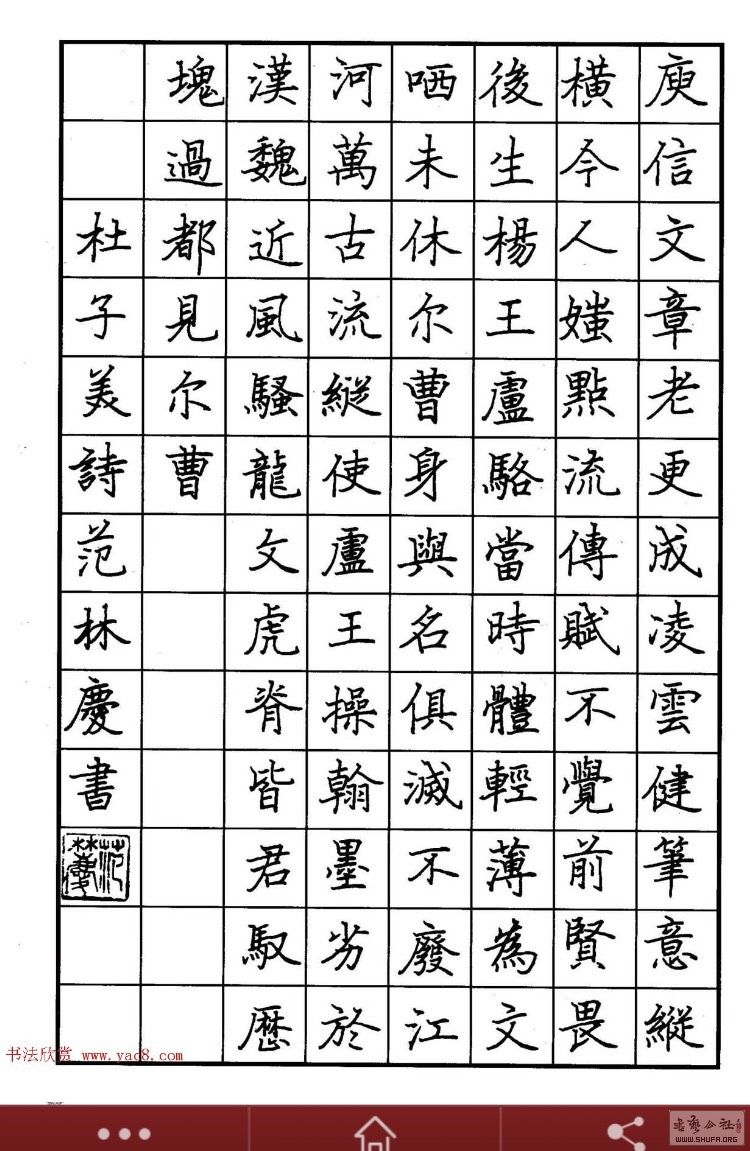 庾信文章老更成凌雲健筆意縱
橫今人嗤點流傳賦不覺前賢畏
後生楊王盧駱當時體輕薄為文
哂未休尔曹身與名俱滅不廢江
河萬古流縱使盧王操翰墨劣於
漢魏近風騷龍文虎脊皆君馭歷
塊過都見尔曹
杜子美詩范林慶書
范林慶
书法欣赏 www.yac8.com
书艺公社
WWW.SHUFA.ORG